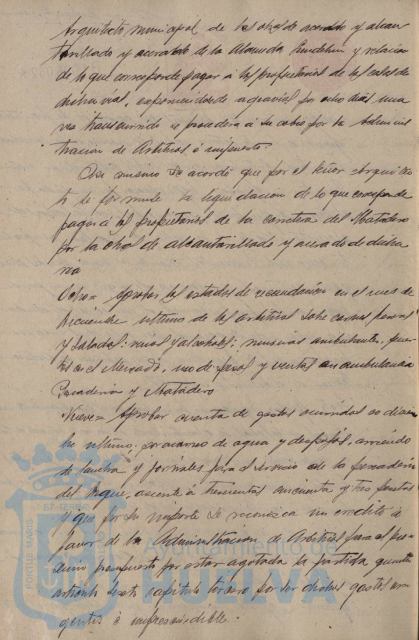 Arquitecto municipal de las obras de acerado y alcan
tarillado y acerado de la Alameda Sundheim y relacion
de lo que corresponde pagar á los propietarios de las casas de
dicha via, exponiendose al por ocho dias una
vez transcurrido se procederá á su cobro por la Adminis
tracion de Arbitrios é impuestos.
Asi mismo se acordó que por el Señor Arquitec
to se formule la liquidacion de lo que corresponde
pagar á los propietarios de la carretera del Matadero
por la obra de alcantarillado y acerado de dicha
via
Ocho= Aprobar los estados de recaudacion en el mes de
Diciembre ultimo de los arbitrios sobre carnes frescas
y saladas: vinos y alcoholes: ambulante, pues
tos en el Mercado, uso de pesas y ventas en ambulancia
Pescaderia y Matadero
Nueve= Aprobar cuenta de gastos ocurridos en Diciem
bre ultimo: de agua y arriendo
de lancha y jornales para el servicio de la pescaderia
del Dique, ascente á trescientas cincuenta y tres pesetas
y que por su importe se reconozca un credito á
favor de la Administracion de Arbitrios para el pro
ximo presupuesto por estar agotada la partida
articulo sexto capitulo tercero por los dichos gastos ur
gentes é imprescindible.
PORTUS MARIS
Ayuntamiento de
HUELVA